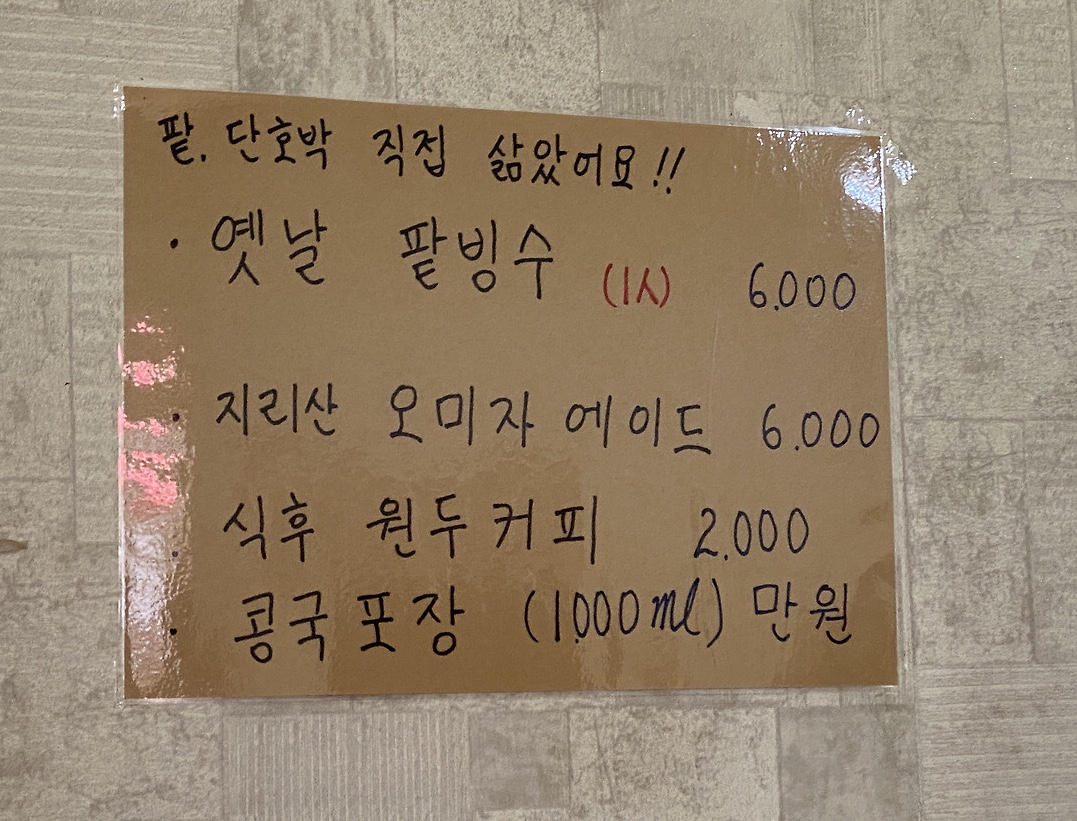 팥. 단호박 직접 삶았어요!!
· 옛날 팥빙수 (1人) 6.000
· 지리산 오미자 에이드 6.000
· 식후 원두커피 2.000
· 콩국포장 (1.000ml) 만원